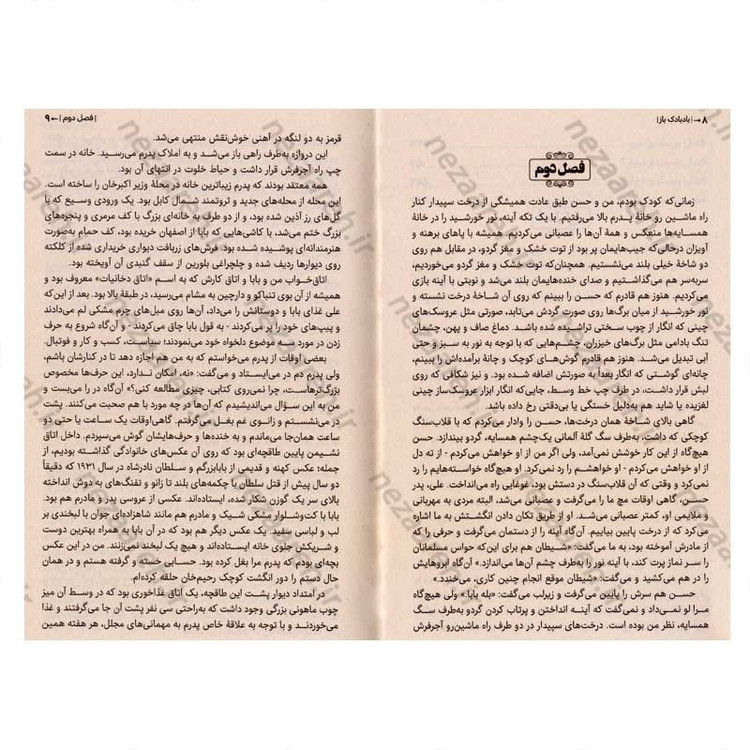 ۸ ← | بادبادک باز |
فصل دوم
زمانی‌که کودک بودم، من و حسن طبق عادت همیشگی از درخت سپیدار کنار
راه ماشین رو خانهٔ پدرم بالا می‌رفتیم. با یک تکه آینه، نور خورشید را در خانهٔ
همسایه‌ها منعکس و همهٔ آن‌ها را عصبانی می‌کردیم. همیشه با پاهای برهنه و
آویزان درحالی‌که جیب‌هایمان پر بود از توت خشک و مغز گردو، در مقابل هم روی
دو شاخهٔ خیلی بلند می‌نشستیم. همچنان‌که توت خشک و مغز گردو می‌خوردیم،
سربه‌سر هم می‌گذاشتیم و صدای خنده‌هایمان بلند می‌شد و نوبتی با آینه بازی
می‌کردیم. هنوز هم قادرم که حسن را ببینم که روی آن شاخهٔ درخت نشسته و
نور خورشید از میان برگ‌ها روی صورت گردش می‌تابد، صورتی مثل عروسک‌های
چینی که انگار از چوب سختی تراشیده شده باشد. دماغ صاف و پهن، چشمان
تنگ بادامی مثل برگ‌های خیزران، چشم‌هایی که با توجه به نور به سبز و حتی
آبی تبدیل می‌شد. هنوز هم قادرم گوش‌های کوچک و چانهٔ برآمده‌اش را ببینم،
چانه‌ای گوشتی که انگار بعداً به صورتش اضافه شده بود. و نیز شکافی که روی
لبش قرار داشت، در طرف چپ خط وسط، جایی‌که انگار ابزار عروسک‌ساز چینی
لغزیده یا شاید هم به‌دلیل خستگی یا بی‌دقتی رخ داده باشد.
گاهی بالای شاخهٔ همان درخت‌ها، حسن را وادار می‌کردم که با قلاب‌سنگ
کوچکی که داشت، به‌طرف سگ گلهٔ آلمانی یک‌چشم همسایه، گردو بیندازد. حسن
هیچ‌گاه از این کار خوشش نمی‌آمد، ولی اگر من از او خواهش می‌کردم - از ته دل
از او خواهش می‌کردم - او خواهشم را رد نمی‌کرد. او هیچ‌گاه خواسته‌هایم را رد
نمی‌کرد و وقتی که آن قلاب‌سنگ در دستش بود، غوغایی راه می‌انداخت. علی، پدر
حسن، گاهی اوقات مچ ما را می‌گرفت و عصبانی می‌شد، البته مردی به مهربانی
و ملایمی او، کمتر عصبانی می‌شد. او از طریق تکان دادن انگشتش به ما اشاره
می‌کرد که از درخت پایین بیاییم. آن‌گاه آینه را از دستمان می‌گرفت و حرفی را که
از مادرش آموخته بود، به ما می‌گفت: «شیطان هم برای این‌که حواس مسلمانان
را سر نماز پرت کند، با آینه نور را به‌طرف چشم آن‌ها می‌اندازد.» آن‌گاه ابروهایش
را در هم می‌کشید و می‌گفت: «شیطان موقع انجام چنین کاری، می‌خندید.»
حسن هم سرش را پایین می‌گرفت و زیرلب می‌گفت: «بله بابا» ولی هیچ‌گاه
مرا لو نمی‌داد و نمی‌گفت که آینه انداختن و پرتاب کردن گردو به‌طرف سگ
همسایه، نظر من بوده است. درخت‌های سپیدار در دو طرف راه ماشین‌رو آجرفرش
| فصل دوم | ← ۹
قرمز به دو لنگه در آهنی خوش‌نقش منتهی می‌شد.
این دروازه به‌طرف راهی باز می‌شد و به املاک پدرم می‌رسید. خانه در سمت
چپ راه آجرفرش قرار داشت و حیاط خلوت در انتهای آن بود.
همه معتقد بودند که پدرم زیباترین خانه در محلهٔ وزیر اکبرخان را ساخته است.
این محله از محله‌های جدید و ثروتمند شمال کابل بود. یک ورودی وسیع که با
گل‌های رز آذین شده بود، و از دو طرف به خانه‌ای بزرگ با کف مرمری و پنجره‌های
بزرگ ختم می‌شد، با کاشی‌هایی که بابا از اصفهان خریده بود، کف حمام به‌صورت
هنرمندانه‌ای پوشیده شده بود. فرش‌های زربافت دیواری خریداری شده از کلکته
روی دیوارها ردیف شده و چلچراغی بلورین از سقف گنبدی آن آویخته بود.
اتاق‌خواب من و بابا و اتاق کارش که به اسم «اتاق دخانیات» معروف بود و
همیشه از آن بوی تنباکو و دارچین به مشام می‌رسید، در طبقهٔ بالا بود. بعد از این‌که
علی غذای بابا و دوستانش را می‌داد، آن‌ها روی مبل‌های چرم مشکی لم می‌دادند
و پیپ‌های خود را پر می‌کردند - به قول بابا چاق می‌کردند - و آن‌گاه شروع به حرف
زدن در مورد سه موضوع دلخواه خود می‌نمودند؛ سیاست، کسب و کار و فوتبال.
بعضی اوقات از پدرم می‌خواستم که به من هم اجازه دهد تا در کنارشان باشم،
ولی پدرم دم در می‌ایستاد و می‌گفت: «نه، امکان ندارد، این حرف‌ها مخصوص
بزرگ‌ترهاست، چرا نمی‌روی کتابی، چیزی مطالعه کنی؟» آن‌گاه در را می‌بست و
من به این سؤال می‌اندیشیدم که آن‌ها در چه مورد با هم صحبت می‌کنند. پشت
در می‌نشستم و زانوی غم بغل می‌گرفتم. گاهی‌اوقات یک ساعت یا حتی دو
ساعت همان‌جا می‌ماندم و به خنده‌ها و حرف‌هایشان گوش می‌سپردم. داخل اتاق
نشیمن پایین طاقچه‌ای بود که روی آن عکس‌های خانوادگی گذاشته بودیم، از
جمله؛ عکس کهنه و قدیمی از بابابزرگم و سلطان نادرشاه در سال ۱۹۳۱ که دقیقاً
دو سال پیش از قتل سلطان با چکمه‌های بلند تا زانو و تفنگ‌های به دوش انداخته
بالای سر یک گوزن شکار شده، ایستاده‌اند. عکسی از عروسی پدر و مادرم هم بود.
بابا با کت‌وشلوار مشکی شیک و مادرم هم مانند شاهزاده‌ای جوان با لبخندی بر
لب و لباسی سفید. یک عکس دیگر هم بود که در آن بابا به همراه بهترین دوست
و شریکش جلوی خانه ایستاده‌اند و هیچ یک لبخند نمی‌زنند. من در این عکس
بچه‌ای بودم که پدرم مرا بغل کرده بود. حسابی خسته و گرفته هستم و در همان
حال دستم را دور انگشت کوچک رحیم‌خان حلقه کرده‌ام.
در امتداد دیوار پشت این طاقچه، یک اتاق غذاخوری بود که در وسط آن میز
چوب ماهونی بزرگی وجود داشت که به‌راحتی سی نفر پشت آن جا می‌گرفتند و غذا
می‌خوردند و با توجه به علاقهٔ خاص پدرم به مهمانی‌های مجلل، هر هفته همین
nezaareh.ir